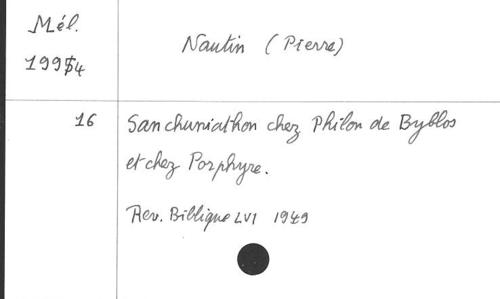 Mél.
199$4
Nautin (Pierre)
16
Sanchuniathon chez Philon de Byblos
et chez Porphyre.
Rev. Biblique LVI 1949